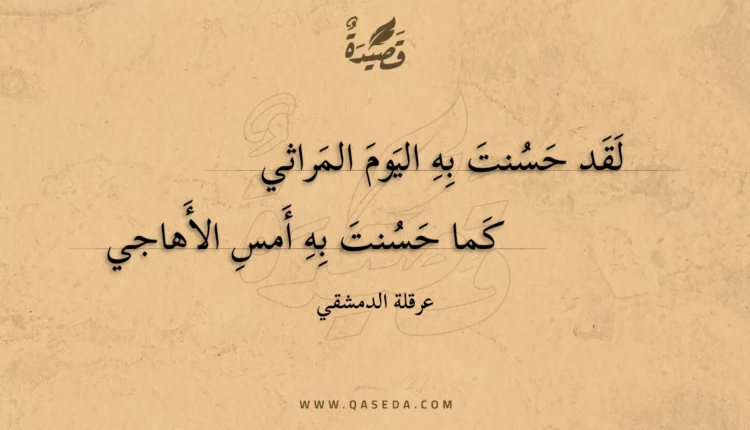 قَصِيدَةٌ
لَقَد حَسُنتَ بِهِ اليَومَ المَراثي
كَما حَسُنتَ بِهِ أَمسِ الأَهاجي
عرقلة الدمشقي
WWW.QASEDA.COM